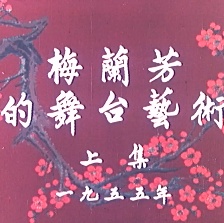 梅蘭芳
的舞台藝術
上集
一九五五年